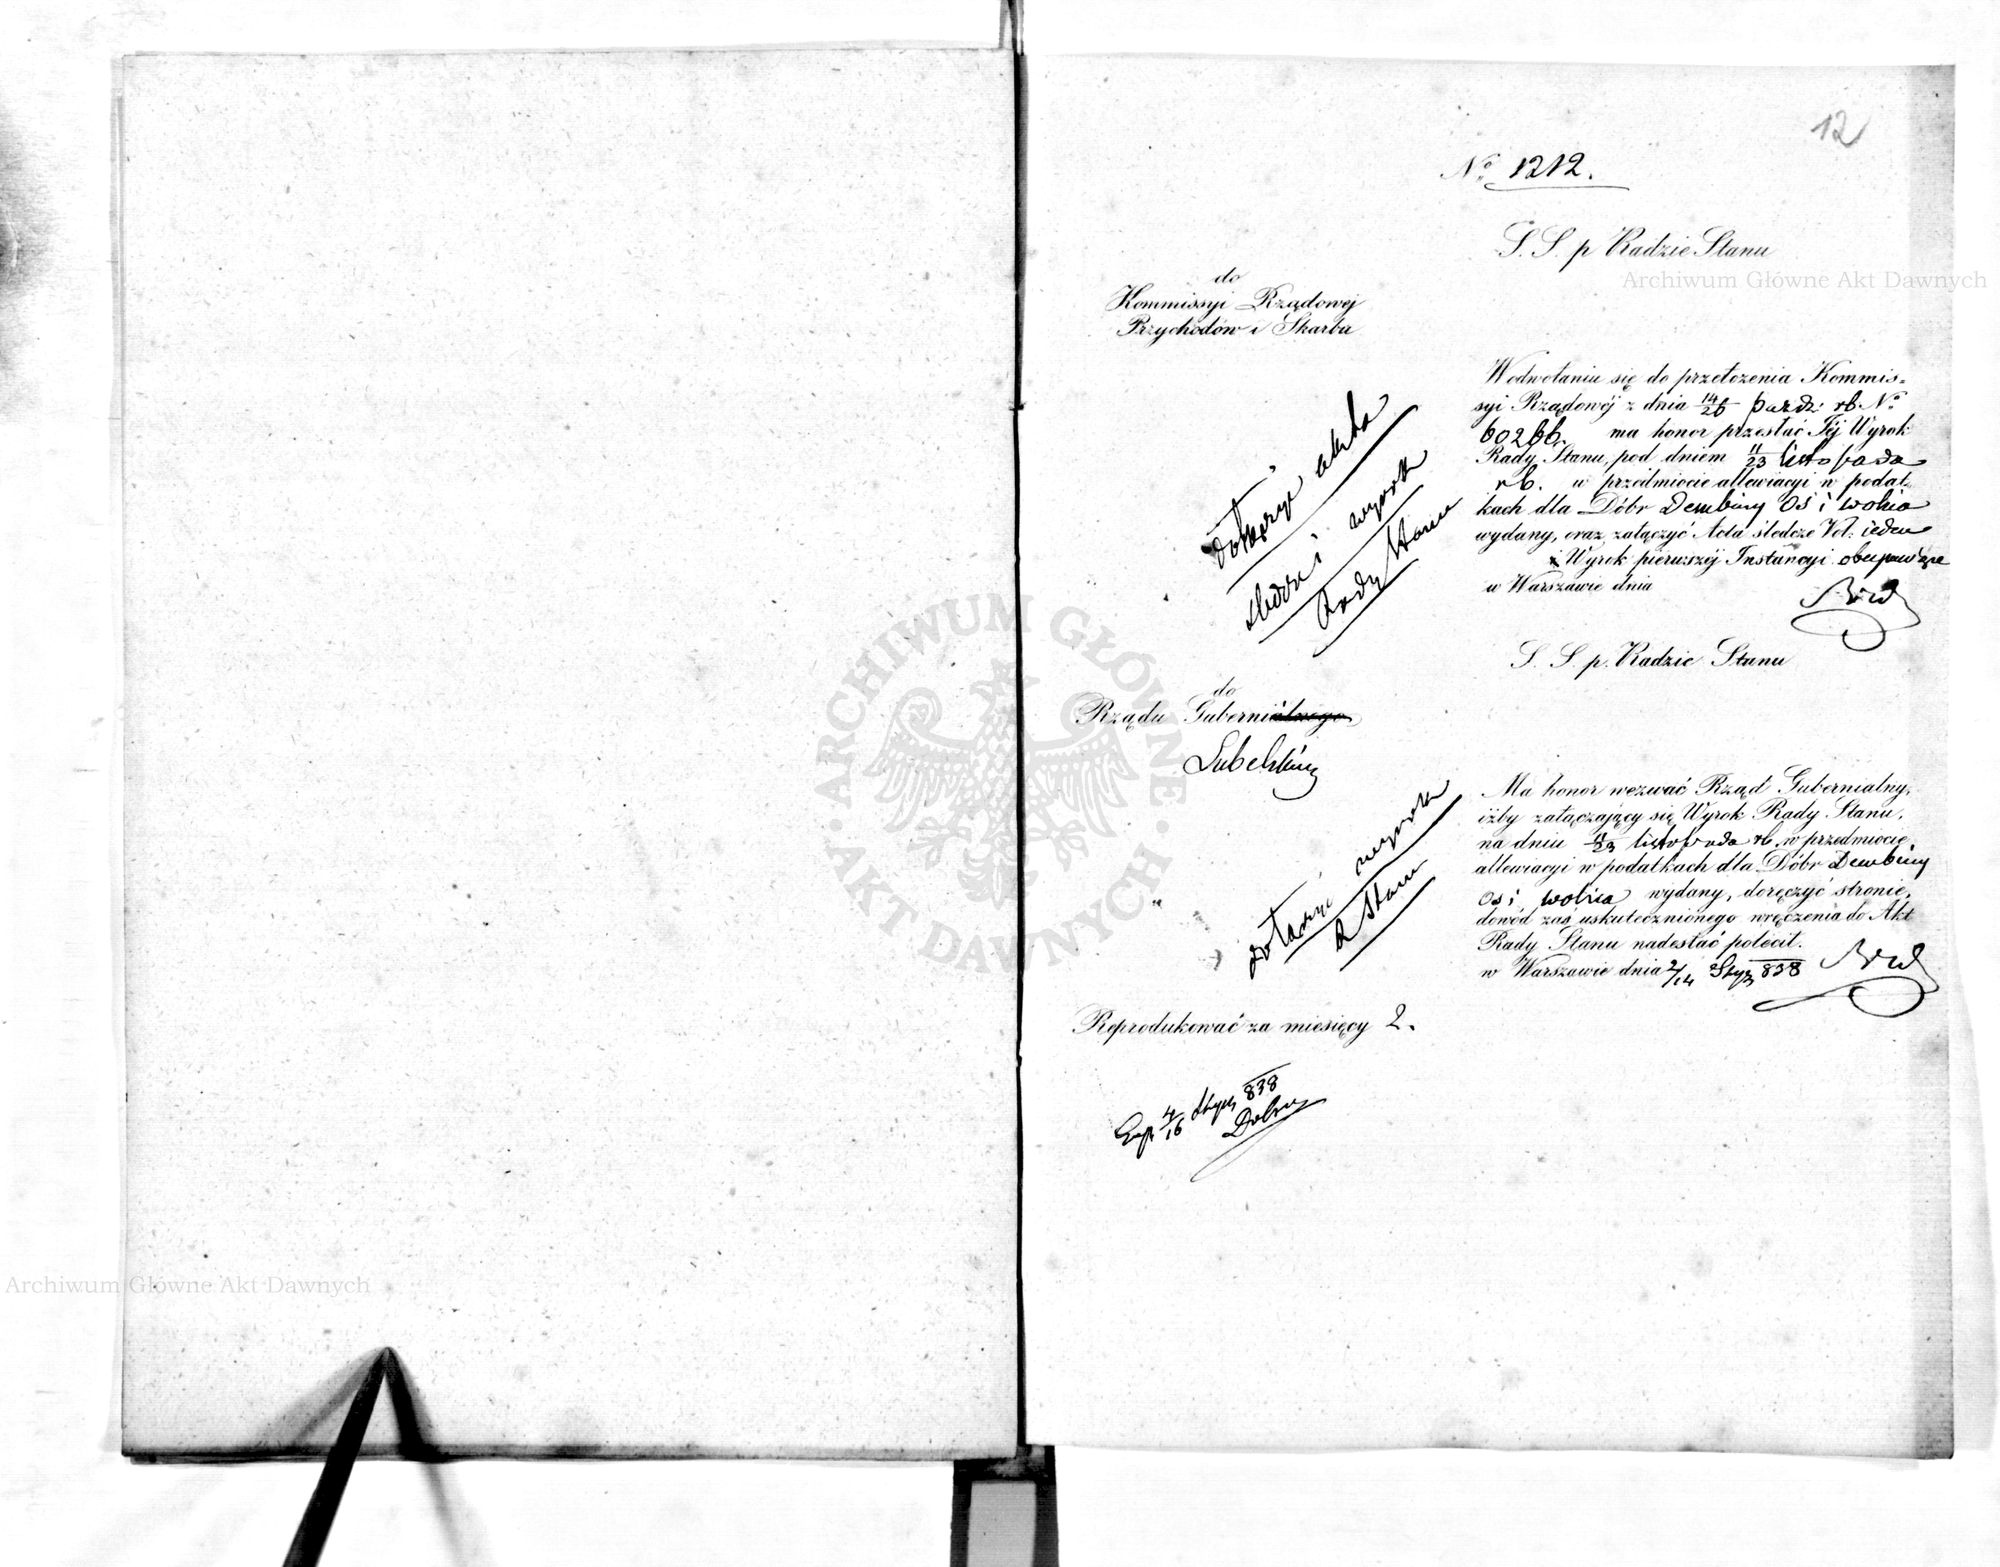 12
Nº 1212.
S. S. p Radzie Stanu
do
Kommissyi Rządowej
Przychodów i Skarbu
Wodwołaniu się do przełożenia Kommis=
syi Rządowéj z dnia 14/26 Paźdz: rb. Nº
60266. ma honor przesłać Jéj Wyrok
Rady Stanu, pod dniem 11/23 listopada
rb. w przedmiocie allewiacyi w podat=
kach dla Dóbr Dembiny Oś i Wolica
wydany, oraz załączyć Acta śledcze Vol: ieden
i Wyrok pierwszéj Instancyi
w Warszawie dnia
dołączyć akta
śledcze i wyrok
Rady Stanu
S. S. p. Radzie Stanu
do
Rządu Gubernialnego
Lubelskiey
Ma honor wezwać Rząd Gubernialny,
iżby załączający się Wyrok Rady Stanu,
na dniu 11/23 listopada rb. w przedmiocie
allewiacyi w podatkach dla Dóbr Dembiny
Oś i Wolica wydany, doręczyć stronie,
dowód zaś uskutecznionego wręczenia do Akt
Rady Stanu nadesłać polecił.
w Warszawie dnia 2/14 Stycz 838
dołączyć wyrok
R Stanu
Reprodukować za miesięcy 2.
Exp 4/16 Stycz 838
Archiwum Główne Akt Dawnych
Archiwum Główne Akt Dawnych
ARCHIWUM GŁÓWNE AKT DAWNYCH